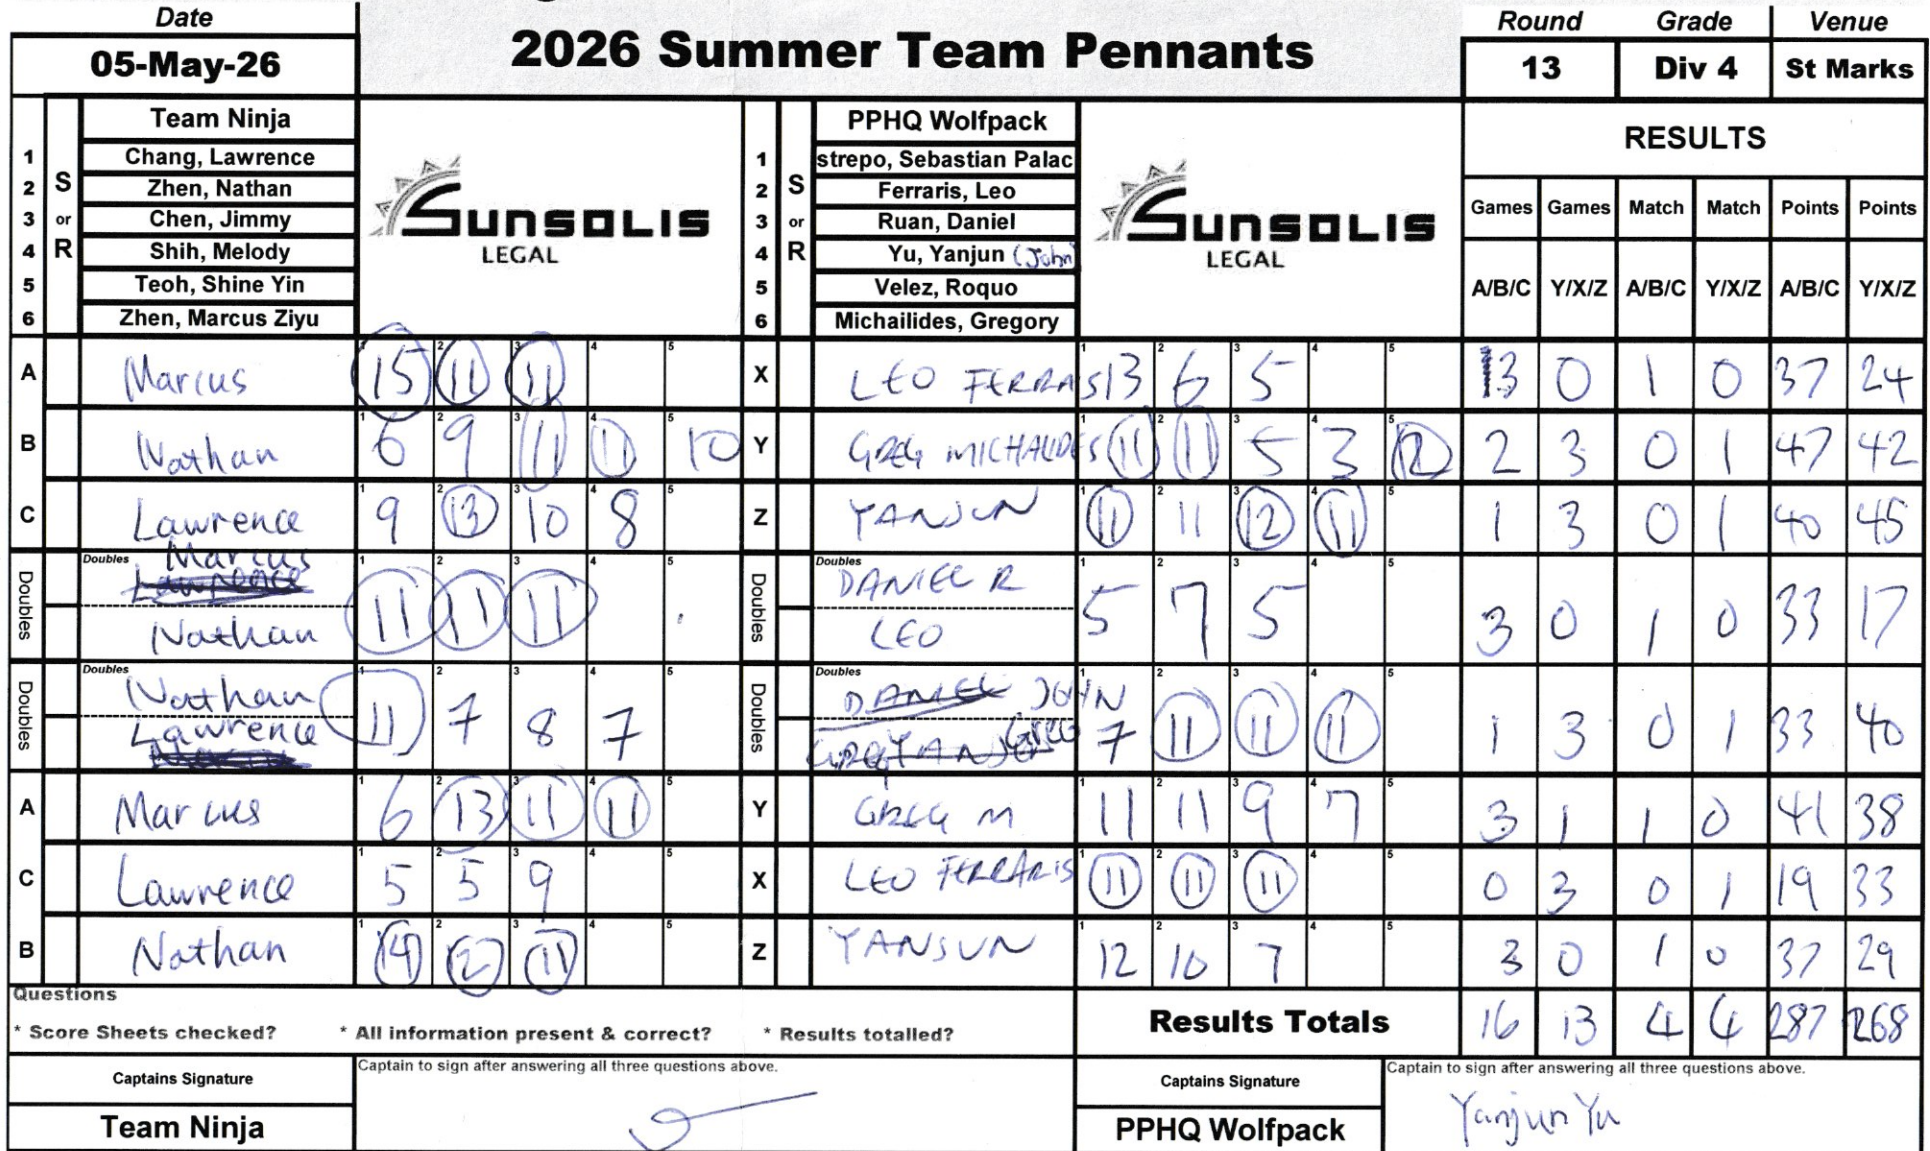 Date
05-May-26
2026 Summer Team Pennants
Round Grade Venue
13 Div 4 St Marks
Team Ninja
1 Chang, Lawrence
2 S Zhen, Nathan
3 or Chen, Jimmy
4 R Shih, Melody
5 Teoh, Shine Yin
6 Zhen, Marcus Ziyu
SUNSOLIS
LEGAL
PPHQ Wolfpack
1 strepo, Sebastian Palac
2 S Ferraris, Leo
3 or Ruan, Daniel
4 R Yu, Yanjun (John)
5 Velez, Roquo
6 Michailides, Gregory
SUNSOLIS
LEGAL
RESULTS
Games Games Match Match Points Points
A/B/C Y/X/Z A/B/C Y/X/Z A/B/C Y/X/Z
A Marcus 1 15 2 11 3 11 4 5 X LEO FERRAIS 1 13 2 6 3 5 4 5 3 0 1 0 37 24
B Nathan 1 6 2 9 3 11 4 11 5 10 Y GREG MICHAILIDES 1 11 2 11 3 5 4 3 5 12 2 3 0 1 47 42
C Lawrence 1 9 2 13 3 10 4 8 5 Z YANJUN 1 11 2 11 3 12 4 11 5 1 3 0 1 40 45
Doubles Doubles Marcus
Nathan
1 11 2 11 3 11 4 5
Doubles Doubles DANIEL R
LEO
1 5 2 7 3 5 4 5 3 0 1 0 33 17
Doubles Doubles Nathan
Lawrence
1 11 2 7 3 8 4 7 5
Doubles Doubles DANIEL JOHN
GREG YANJUN Greg
1 7 2 11 3 11 4 11 5 1 3 0 1 33 40
A Marcus 1 6 2 13 3 11 4 11 5 Y GREG M 1 11 2 11 3 9 4 7 5 3 1 1 0 41 38
C Lawrence 1 5 2 5 3 9 4 5 X LEO FERRARIS 1 11 2 11 3 11 4 5 0 3 0 1 19 33
B Nathan 1 14 2 12 3 11 4 5 Z YANSUN 1 12 2 10 3 7 4 5 3 0 1 0 37 29
Questions
* Score Sheets checked? * All information present & correct? * Results totalled?
Results Totals 16 13 4 4 287 268
Captains Signature
Captain to sign after answering all three questions above.
Team Ninja
Captains Signature
Captain to sign after answering all three questions above.
PPHQ Wolfpack
Yanjun Yu